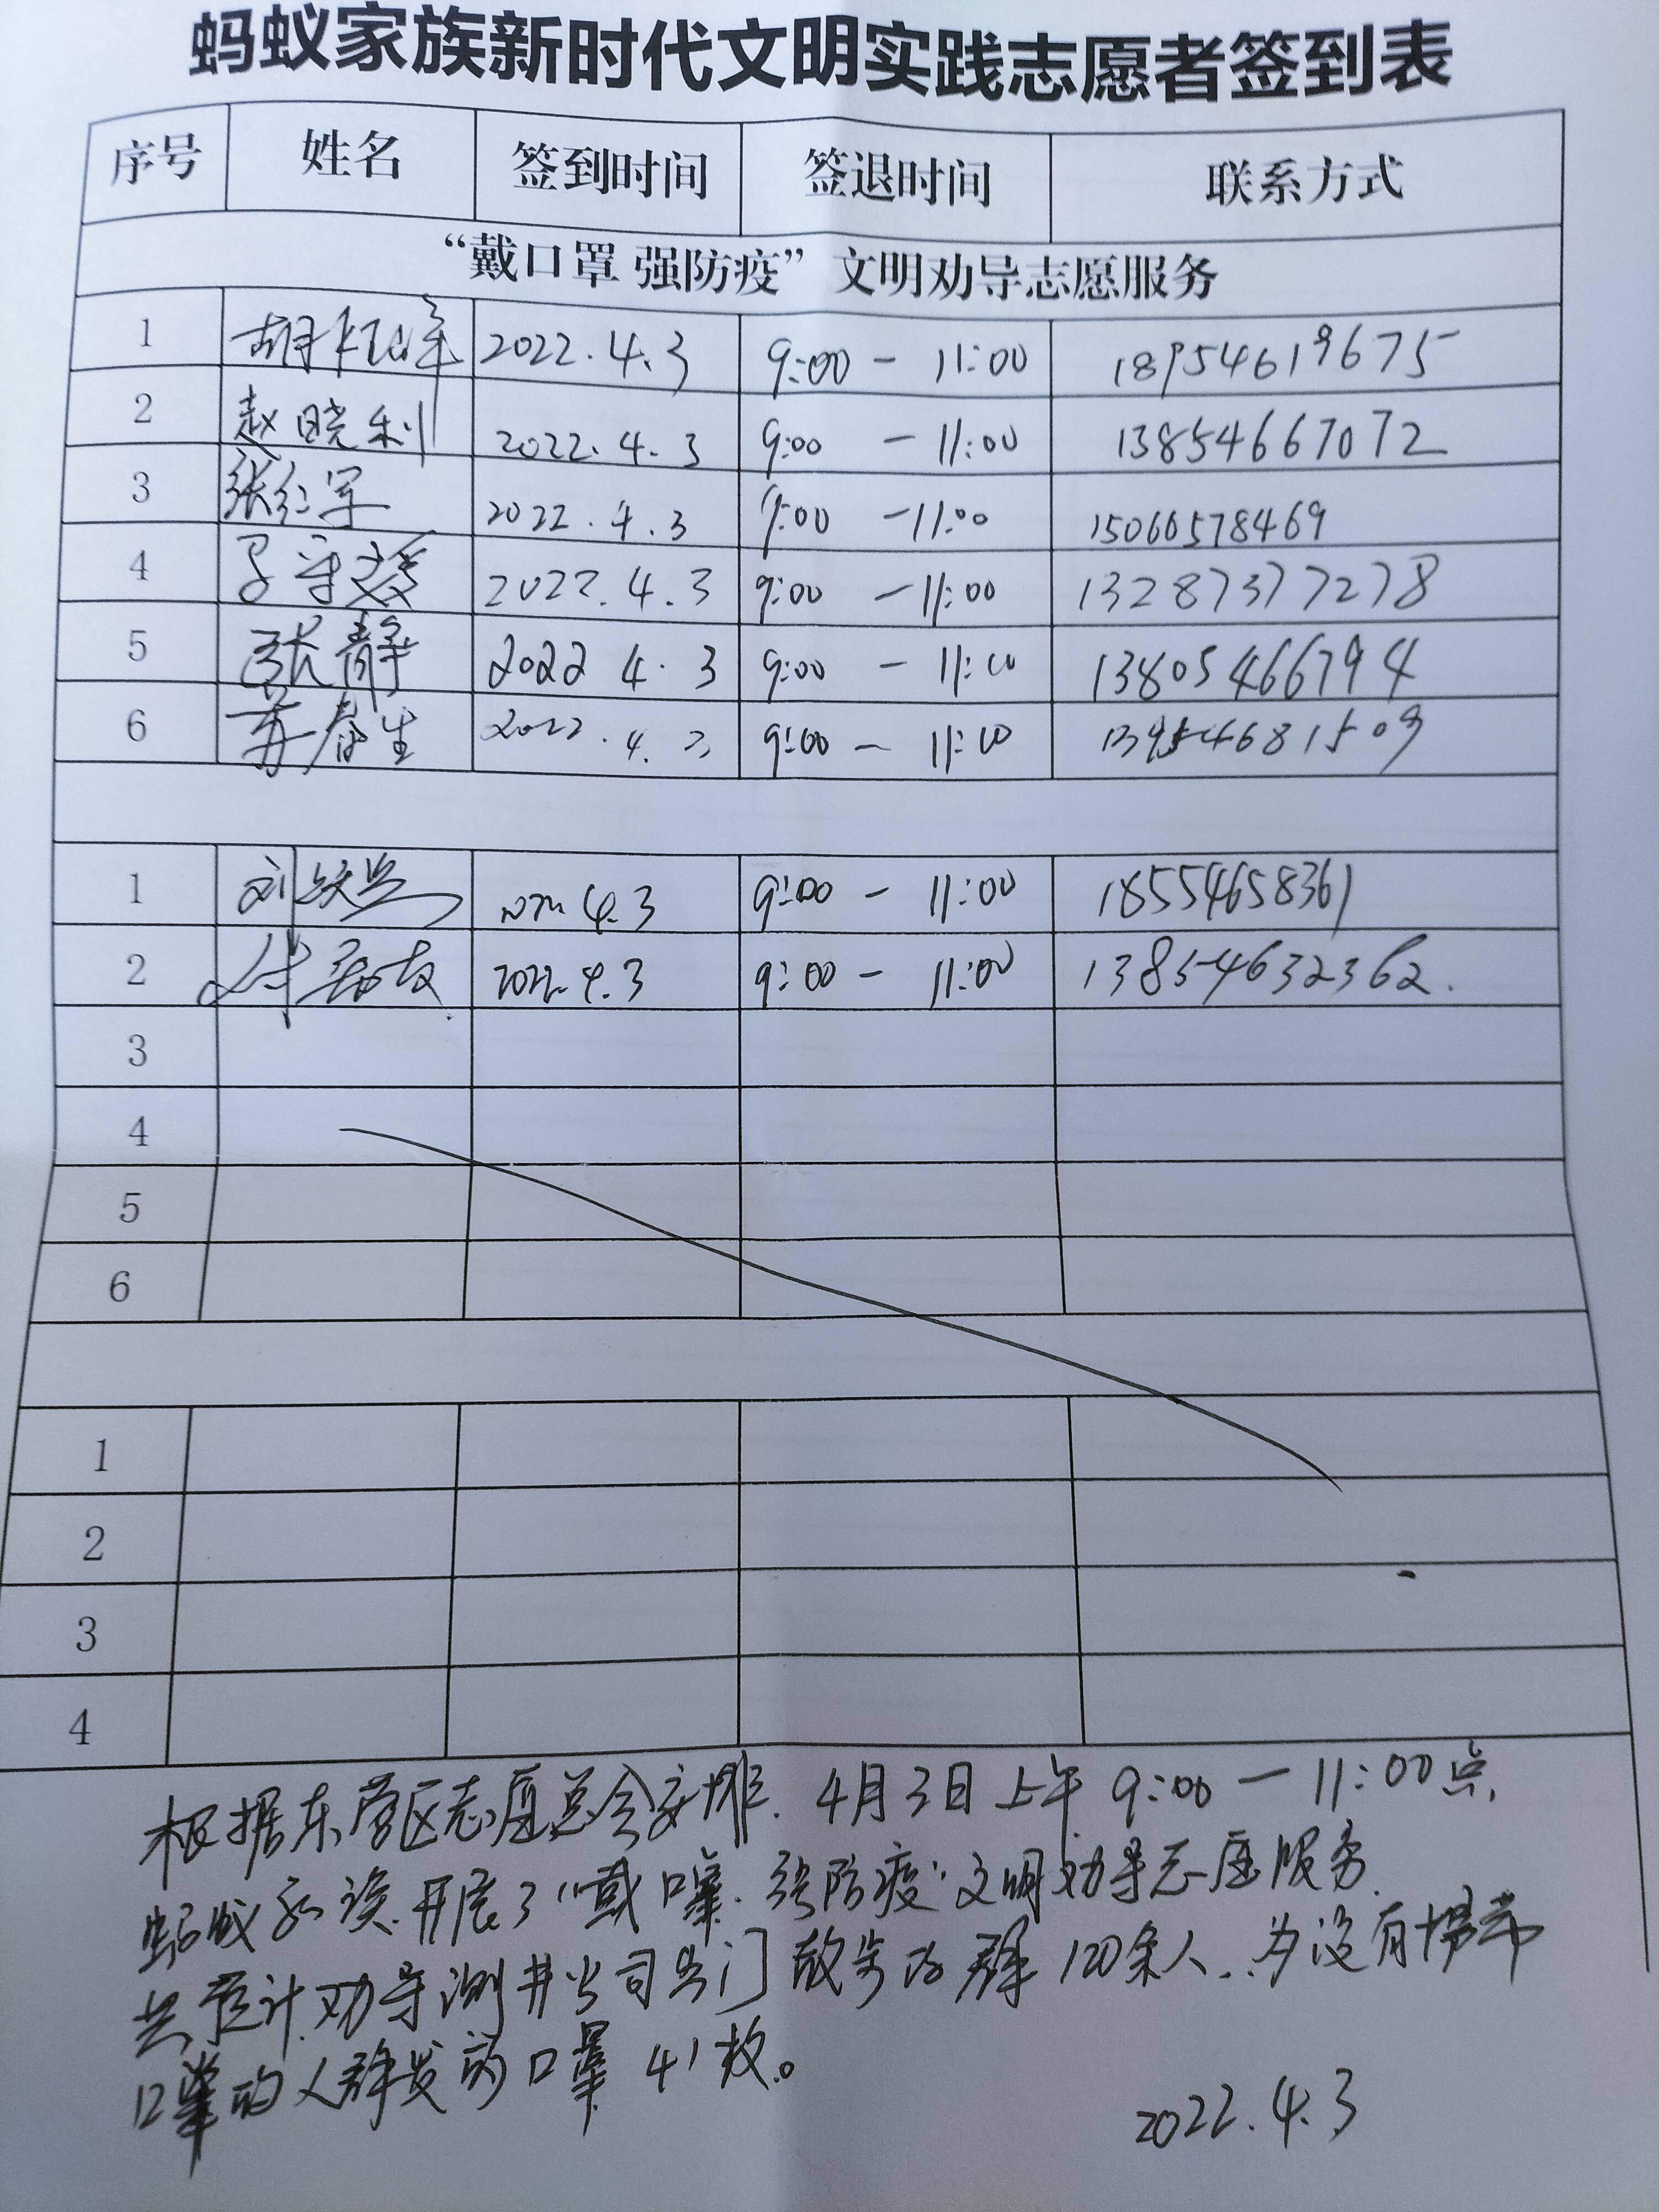 蚂蚁家族新时代文明实践志愿者签到表
序号 姓名 签到时间 签退时间 联系方式
“戴口罩 强防疫”文明劝导志愿服务
1 2022.4.3 9:00 — 11:00 18954619675
2 赵晓利 2022.4.3 9:00 — 11:00 13854667072
3 张红军 2022.4.3 9:00 — 11:00 15066578469
4 2022.4.3 9:00 — 11:00 13287377278
5 张静 2022 4.3 9:00 — 11:00 13805466794
6 春生 2022.4.3 9:00 — 11:00
1 刘 2022 4.3 9:00 — 11:00 18554658361
2 2022.4.3 9:00 — 11:00 13854632362.
3
4
5
6
1
2
3
4
根据东营区志愿总会安排. 4月3日上午 9:00 — 11:00点,
蚂蚁家族开展了“戴口罩.强防疫”文明劝导志愿服务.
共计劝导测井公司东门散步的群 120余人.为没有
口罩的人群发的口罩 41枚。
2022.4.3